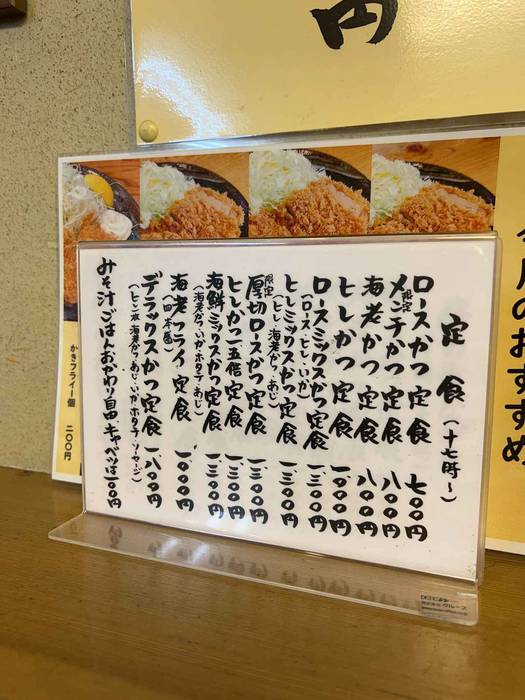 円
今月のおすすめ
定食(十七時〜)
ロースかつ定食 七〇〇円
限定
メンチかつ定食 八〇〇円
海老かつ定食 八〇〇円
ヒレかつ定食 一、〇〇〇円
ロースミックスかつ定食 一、三〇〇円
(ロース・ヒレ・いか)
ヒレミックスかつ定食 一、三〇〇円
(ヒレ・海老かつ・あじ)
限定
厚切ロースかつ定食 一、三〇〇円
ヒレかつ一・五倍定食 一、三〇〇円
海鮮ミックスかつ定食 一、三〇〇円
(海老かつ・いか・ホタテ・あじ)
海老フライ定食 一、〇〇〇円
(四本盛)
デラックスかつ定食 一、八〇〇円
(ヒレ二本・海老かつ・あじ・いか・ホタテ・ソーセージ)
みそ汁ごはんおかわり自由 キャベツは一〇〇円
かきフライ一個 二〇〇円